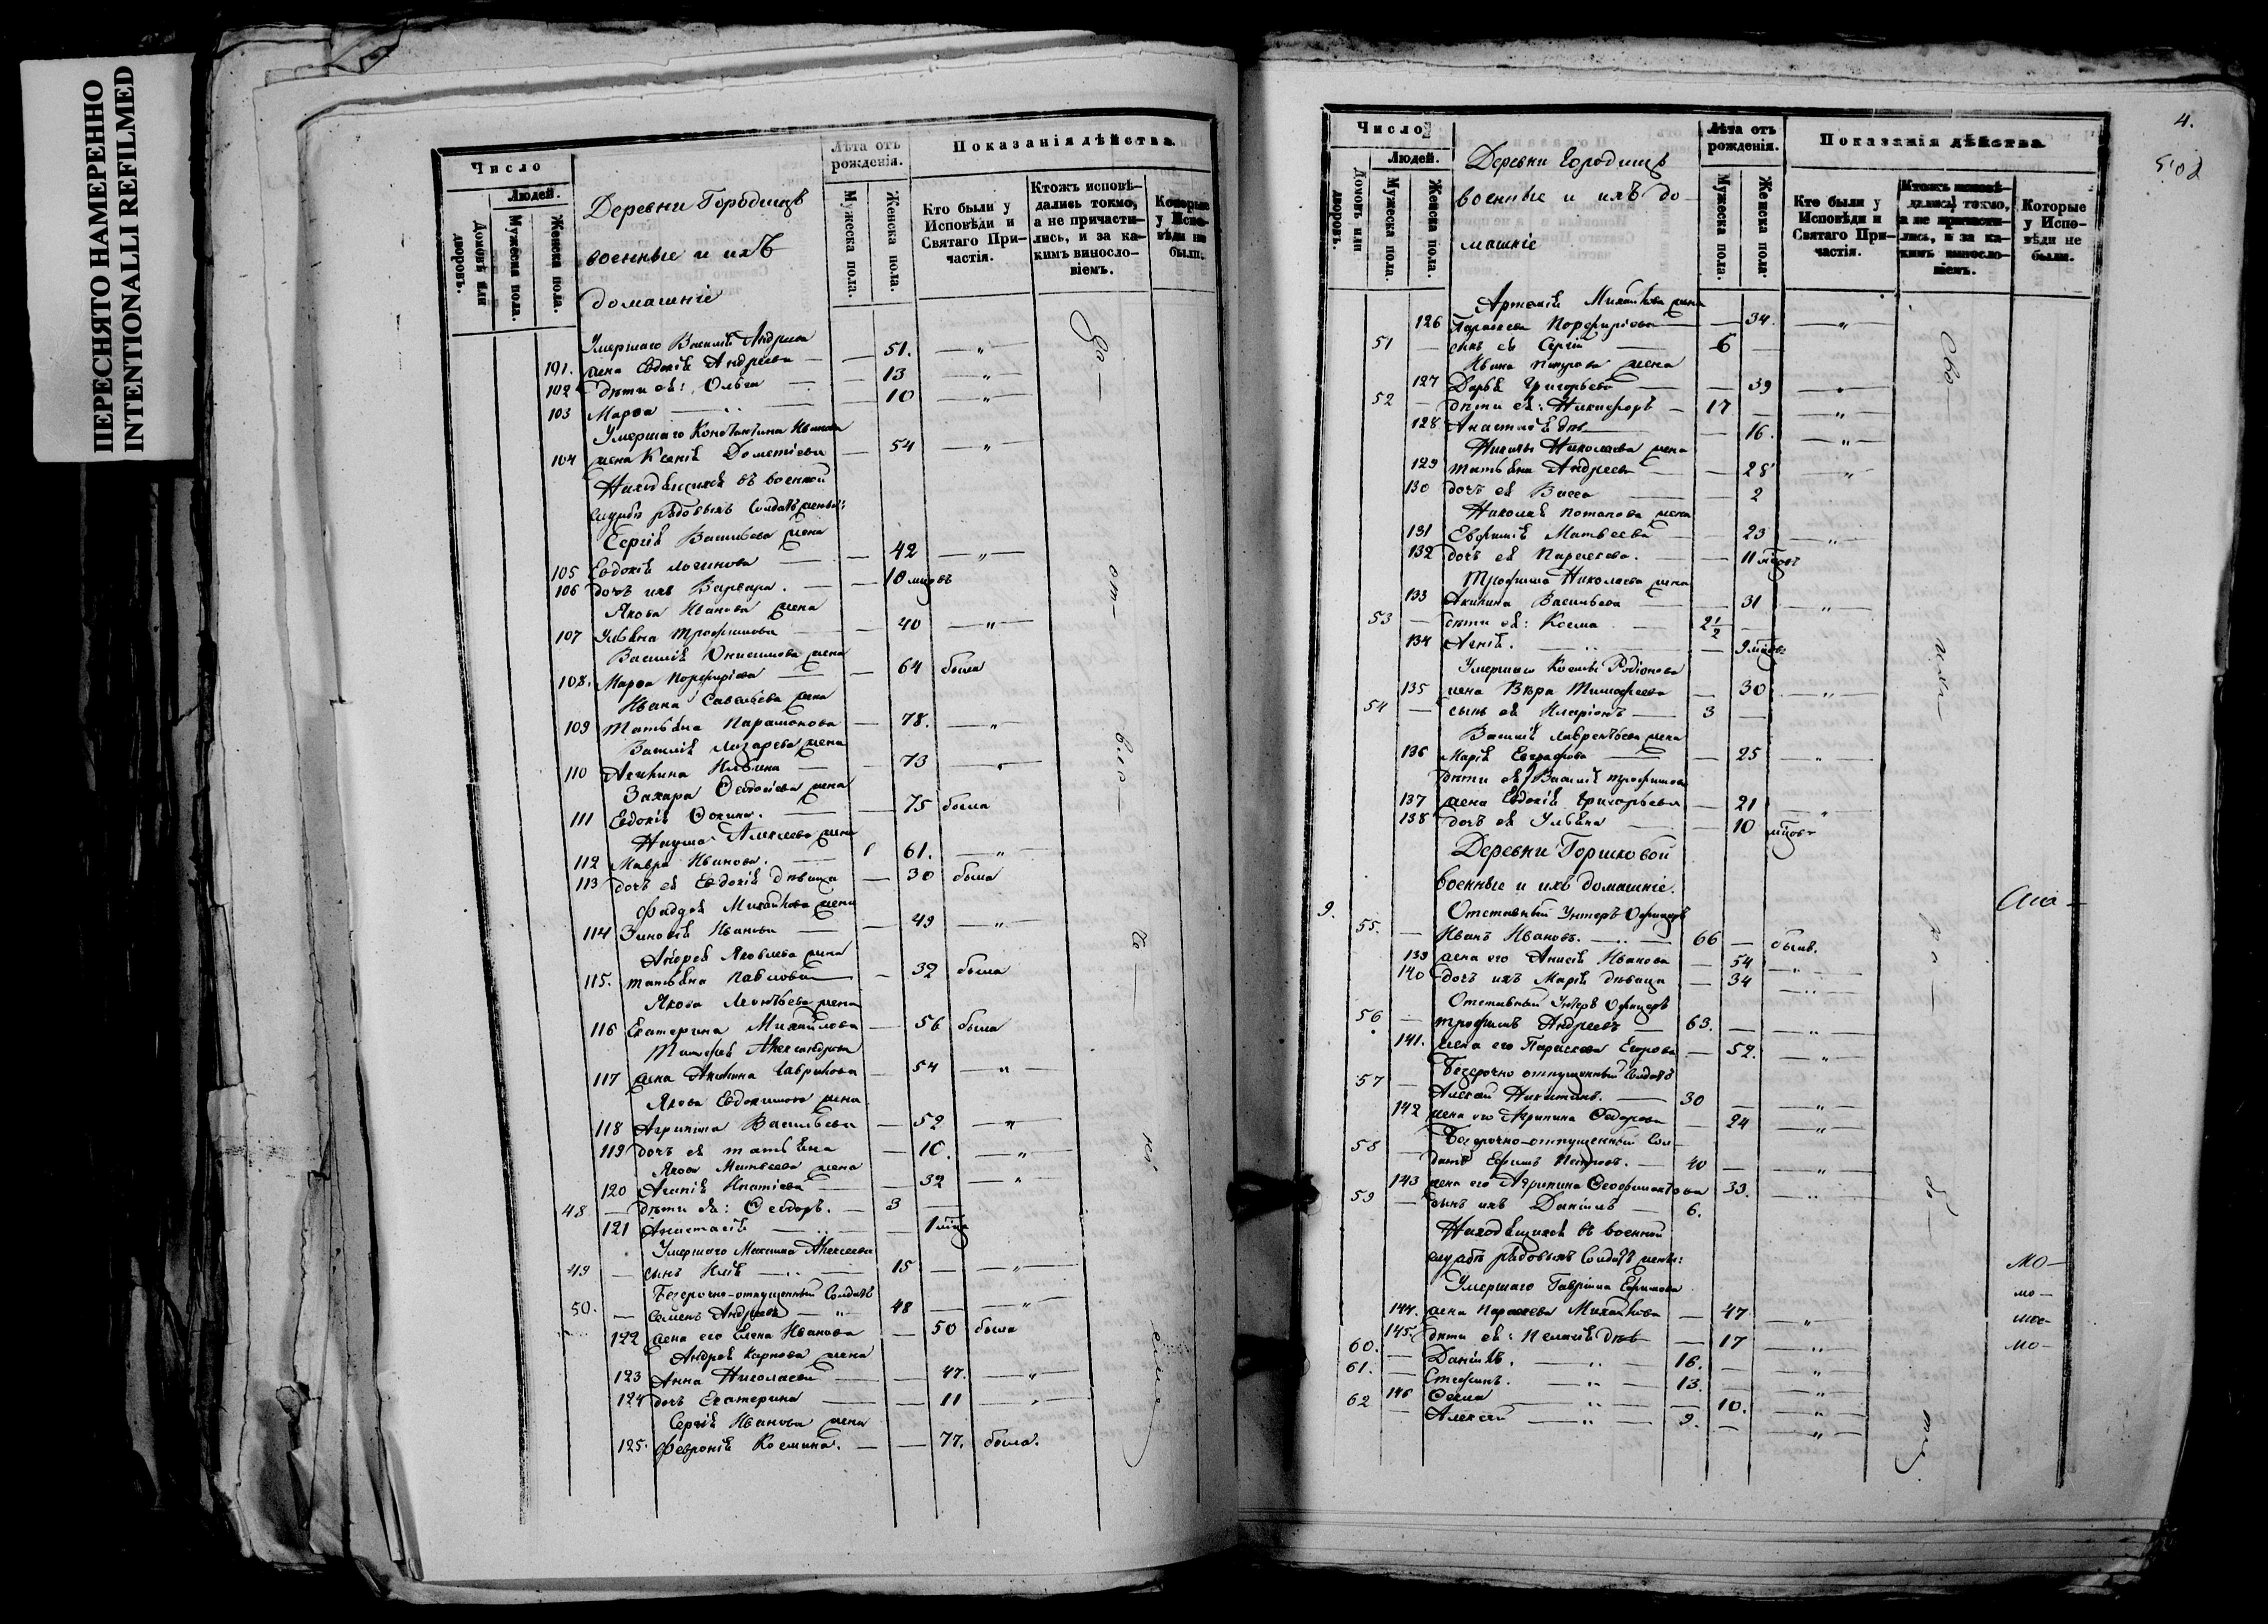 ПЕРЕСНЯТО НАМЕРЕННО
INTENTIONALLI REFILMED
Число
Людей.
Домовъ или дворовъ.
Мужеска пола.
Женска пола.
Деревни Городищъ
военные и ихъ
домашніе
Лѣта отъ рожденія.
Мужеска пола.
Женска пола.
Показанія дѣйства.
Кто были у Исповѣди и Святаго Причастія.
Ктожъ исповѣ-
дались токмо,
а не причасти-
лись, и за ка-
кимъ виносло-
віемъ.
Которые у Испо-
вѣди не
были.
Умершаго Василія Андреева
191. жена Евдокія Андреева — — 51. — „ —
102 дѣти ея: Ольга — — 13 — „ —
103 Марѳа — „ — — 10 — „ —
Умершаго Константина Иванова
104 жена Ксенія Дометіева — 54 — „ —
Находящихся въ военной
службѣ рядовыхъ Солдатъ жены:
Сергія Васильева жена
105 Евдокія Логинова — — 42 — „ —
106 дочь ихъ Варвара. — — 10 мцовъ
Якова Иванова жена
107 Ульяна Трофимова — — 40 — „ —
Василія Онисимова жена
108. Марѳа Порфиріева — — 64 была
Ивана Савельева жена
109 Татьяна Парамонова — 78. — „
Василія Лазарева жена
110 Акилина Ильина — — 73 — „ —
Захара Ѳедосіева жена
111 Евдокія Ѳокина. — — 75 была
Наума Алексеева жена
112 Мавра Иванова. — 61. — „ —
113 дочь ея Евдокія дѣвица — 30 была
Фаддея Михайлова жена
114 Зиновія Иванова — — 49 — „ —
Андрея Яковлева жена
115. Татьяна Павлова — — 32 была
Якова Леонтьева жена
116 Екатерина Михайлова — 56 была
Тимофея Александрова
117 жена Акилина Гаврилова — 54 — „ —
Якова Евдокимова жена
118 Агрипина Васильева — 52 — „ —
119 дочь ея Татьяна — 10. — „ —
Якова Матвеева жена
120 Агапія Игнатіева — — 32 — „ —
48 — дѣти ея: Ѳеодоръ. — 3 —
121 Анастасія — „ — — 1 мца
Умершаго Максима Алексеева
49 — сынъ Илія — „ — 15 — — „ —
Безсрочно-отпущенный Солдатъ
50. — Семенъ Андреевъ — „ — 48 — — „ —
122 жена его Елена Иванова — 50 была
Андрея Карпова жена
123 Анна Николаева — — 47. — „ —
124 дочь Екатерина — — 11 — „ —
Сергія Иванова жена
125. Февронія Косьмина. — — 77. была.
4.
Число
Людей.
Домовъ или дворовъ.
Мужеска пола.
Женска пола.
Деревни Городищъ
военные и ихъ до-
машніе
Лѣта отъ рожденія.
Мужеска пола.
Женска пола.
Показанія дѣйства.
Кто были у Исповѣди и Святаго Причастія.
Ктожъ исповѣ-
дались токмо,
а не причасти-
лись, и за ка-
кимъ виносло-
віемъ.
Которые у Испо-
вѣди не
были.
Артемія Михайлова жена
126 Параскева Порфиріева — — 34. — „ —
51 — сынъ ея Сергій — 6 —
Ивана Петрова жена
127 Дарья Григорьева — — 39 — „ —
52 — дѣти ея: Никифоръ — 17 — — „ —
128 Анастасія дѣв. — — 16. — „ —
Никиты Николаева жена
129 Татьяна Андреева — — 28 — „ —
130 дочь ея Васса — — 2
Николая Потапова жена
131 Евфимія Матвеева — — 23 — „ —
132 дочь ея Параскева. — — 11 мцовъ
Трофима Николаева жена
133 Акилина Васильева — — 31 — „ —
53 — дѣти ея: Косма — 2½ —
134 Агнія. — „ — — 9 мцовъ
Умершаго Космы Родіонова
135 жена Вѣра Тимофеева — 30 — „ —
54 — сынъ ея Иларіонъ — 3 —
Василія Лаврентьева жена
136 Марія Евграфова — — 25 — „ —
дѣти ея: Василія Трофимова
137 жена Евдокія Григорьева — 21 — „ —
138 дочь ея Ульяна — — 10 мцовъ
Деревни Горшковой
Военные и ихъ домашніе.
9. Отставный Унтеръ Офицеръ
55. — Иванъ Ивановъ. — „ — 66 — былъ.
139 жена его Анисія Иванова — 54 — „ —
140 дочь ихъ Марія дѣвица — 34 — „ —
Отставный Унтеръ Офицеръ
56 — Трофимъ Андреевъ — 63. — — „ —
141. жена его Параскева Егорова — 52. — „ —
Безсрочно отпущенный Солдатъ
57 — Алексѣй Никитинъ. — 30 — — „ —
142 жена его Агрипина Ѳедорова — 24 — „ —
Безсрочно-отпущенный Сол-
58 — датъ Ефимъ Петровъ. — 40 — — „ —
143 жена его Агрипина Ѳеофилактова 33. — „ —
59 — сынъ ихъ Даніилъ — 6.
Находящихся въ военной
службѣ рядовыхъ Солдатъ жены:
Умершаго Гавріила Ефимова
144. жена Параскева Михайлова — 47 — „ —
145. дѣти ея: Пелагія дѣв — 17 — „ —
60. — Даніилъ. — „ — 16. — — „ —
61. — Стефанъ. — „ — 13. — — „ —
146 Ѳекла — „ — — 10. — „ —
62 — Алексѣй — „ — 9. — — „ —